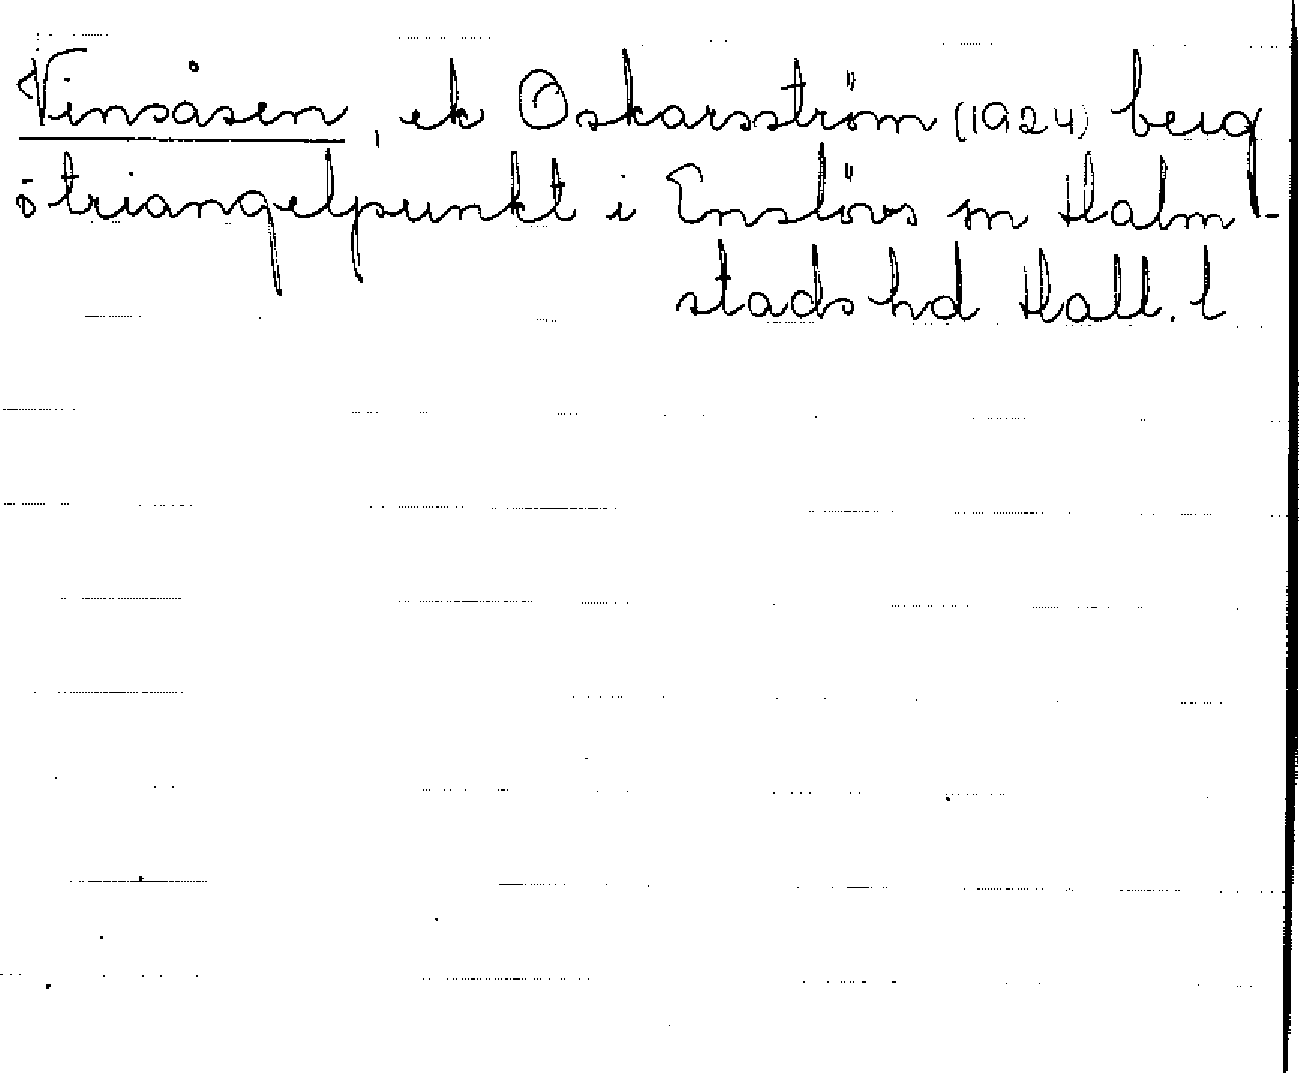 Vinsåsen, ek Oskarsström (1924) berg
o triangelpunkt i Enslövs sn Halm-
stads hd Hall. l